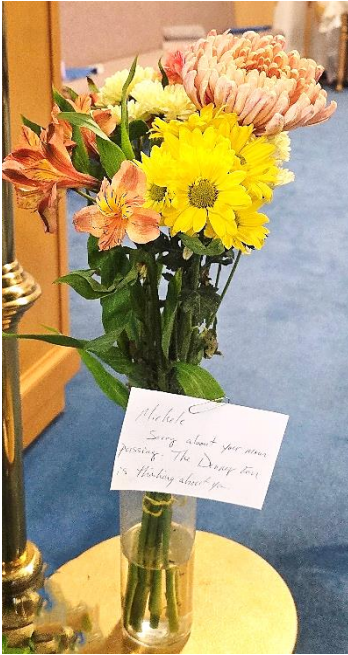 Michele
Sorry about your mom
passing. The Dump team
is thinking about you